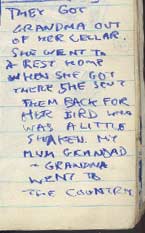 THEY GOT
GRANDMA OUT
OF HER CELLAR.
SHE WENT TO
A REST HOME
WHEN SHE GOT
THERE SHE SENT
THEM BACK FOR
HER BIRD WHO
WAS A LITTLE
SHAKEN. MY
MUM GRANDAD
+ GRANDMA
WENT TO
THE COUNTRY